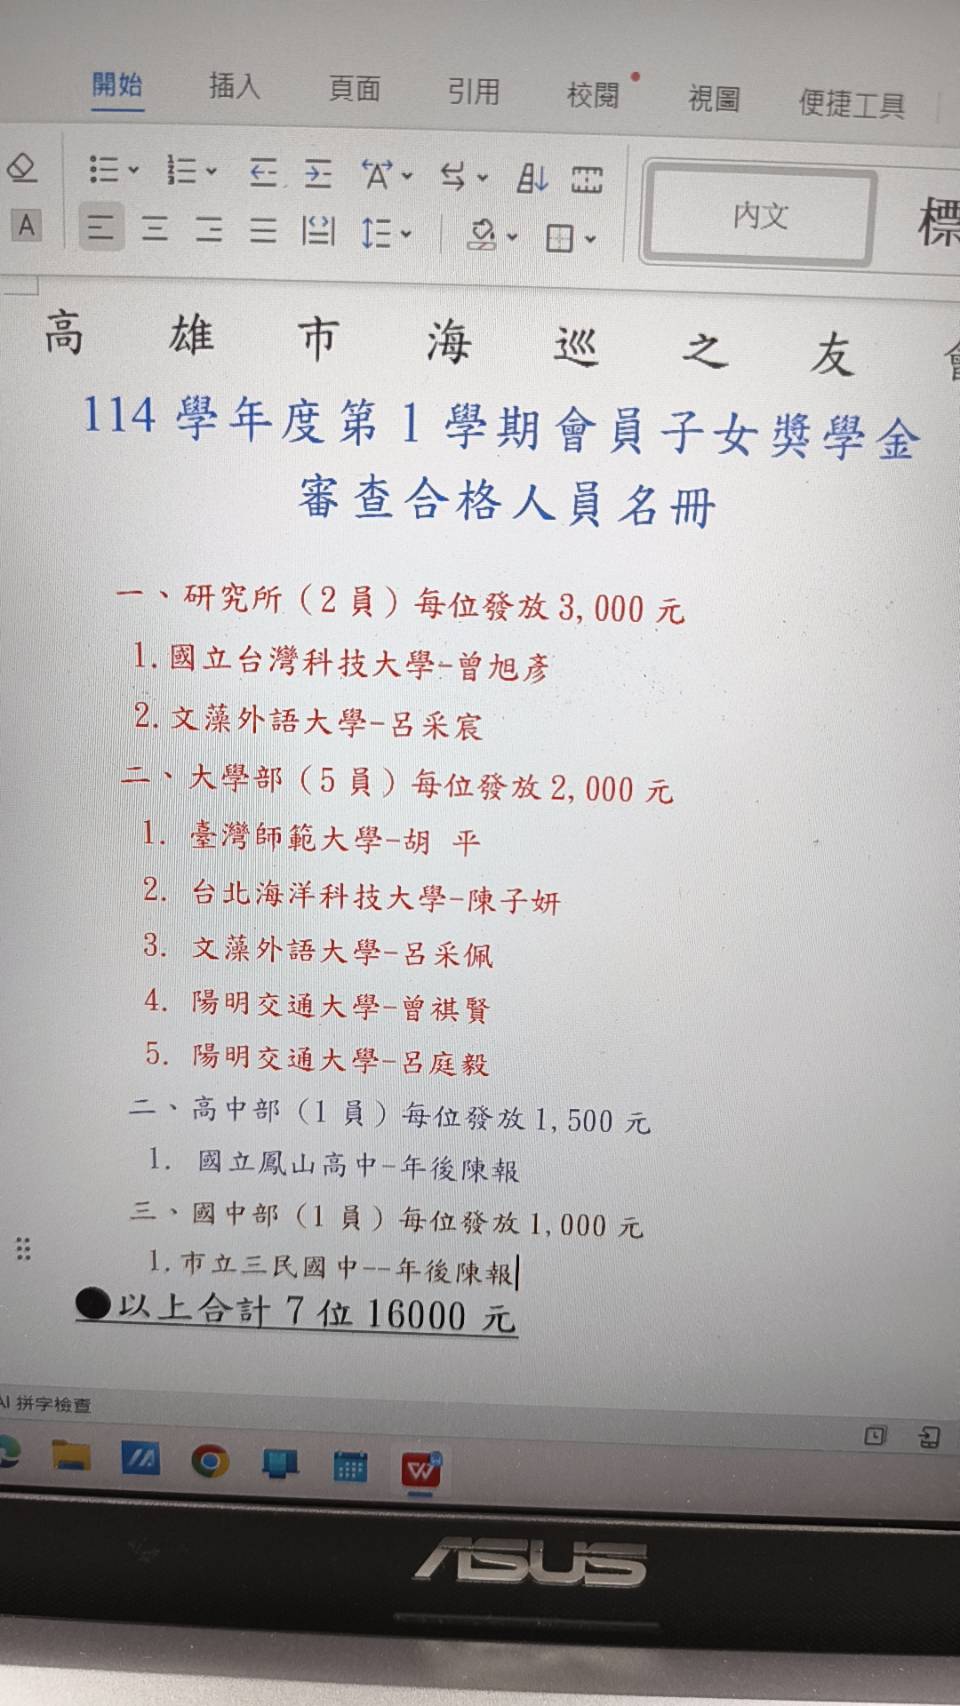 開始 插入 頁面 引用 校閱 視圖 便捷工具
內文 標
高雄市海巡之友會
114 學年度第 1 學期會員子女獎學金
審查合格人員名冊
一、研究所（2 員）每位發放 3,000 元
1.國立台灣科技大學-曾旭彥
2.文藻外語大學-呂采宸
二、大學部（5 員）每位發放 2,000 元
1. 臺灣師範大學-胡 平
2. 台北海洋科技大學-陳子妍
3. 文藻外語大學-呂采佩
4. 陽明交通大學-曾祺賢
5. 陽明交通大學-呂庭毅
二、高中部（1 員）每位發放 1,500 元
1. 國立鳳山高中-年後陳報
三、國中部（1 員）每位發放 1,000 元
1.市立三民國中--年後陳報
●以上合計 7 位 16000 元
AI 拼字檢查
ASUS